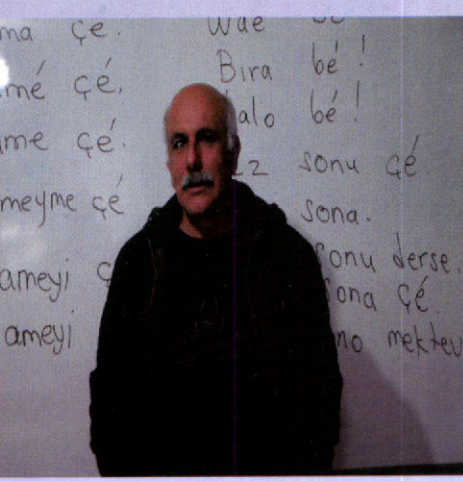 ma çe.
mé çé.
me çé.
meyme çé
ameyi
ameyi
Wae
Bıra bé!
alo bé!
ez sonu çé.
sona.
sonu derse.
sona çé.
no mektev